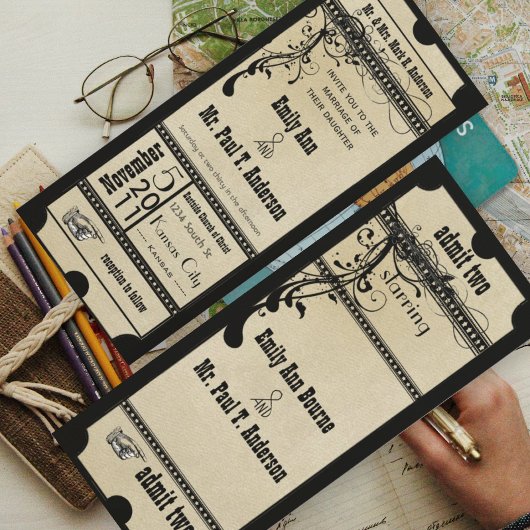 Mr. & Mrs. Mark H. Anderson
INVITE YOU TO THE
MARRIAGE OF
THEIR DAUGHTER
Emily Ann
AND
Mr. Paul T. Anderson
Saturday at two thirty in the afternoon
November
5
20
11
Eastside Church of Christ
1234 South St.
Kansas City
KANSAS
reception to follow
admit two
starring
Emily Ann Bourne
AND
Mr. Paul T. Anderson
admit two